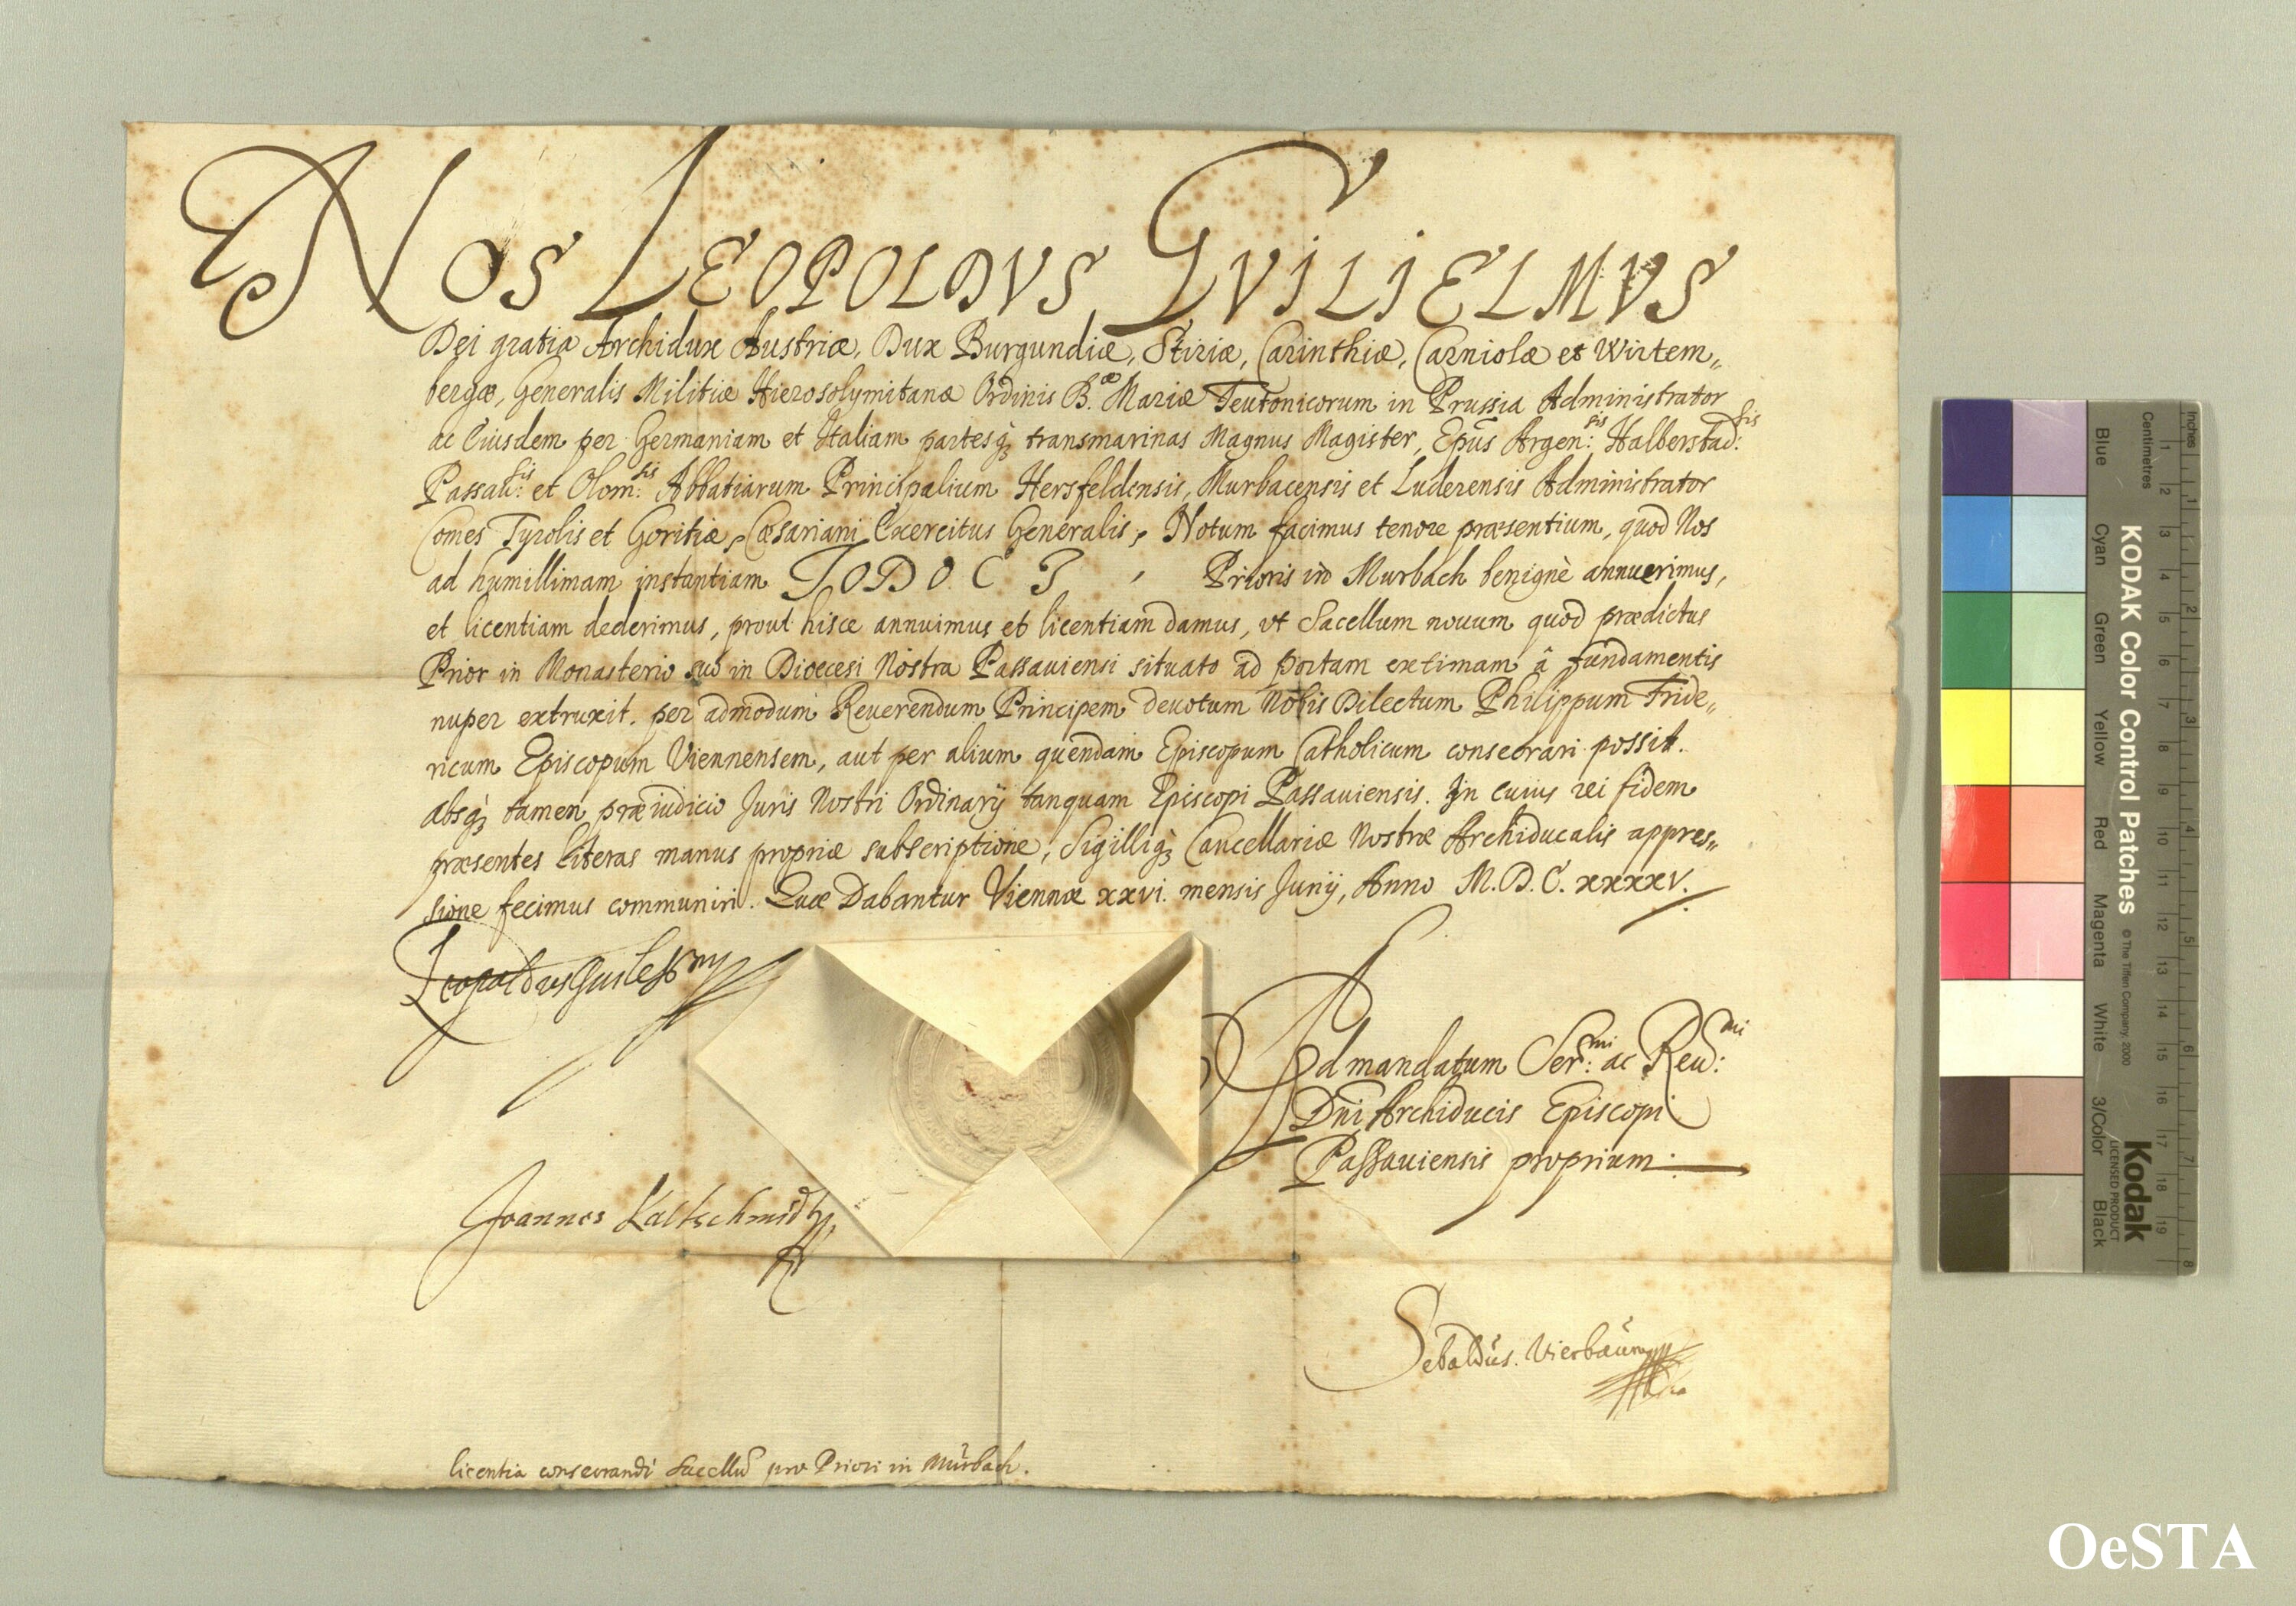 NOS LEOPOLDVS GVILIELMVS
Dei gratia Archidux Austriæ, Dux Burgundiæ, Stiriæ, Carinthiæ, Carniolæ et Wirtem„
bergæ, Generalis Militiæ Hierosolymitanæ Ordinis B.æ Mariæ Teutonicorum in Prussia Administrator
ac Eiusdem per Germaniam et Italiam partesq₃ transmarinas Magnus Magister, Epus̃ Argen:sis Halberstad:sis
Passau:sis et Olom:sis Abbatiarum Principalium Hersfeldensis, Murbacensis et Luderensis Administrator
Comes Tyrolis et Goritiæ, Cæsariani Exercitus Generalis, Notum facimus tenore præsentium, quod Nos
ad humillimam instantiam JODOCI, Prioris in Murbach benignè annuerimus,
et licentiam dederimus, prout hisce annuimus et licentiam damus, vt Sacellum nouum quod prædictus
Prior in Monasterio suo in Dioecesi Nostra Passauiensi situato ad portam extimam â fundamentis
nuper extruxit. per admodum Reuerendum Principem deuotum Nobis Dilectum Philippum Fride„
ricum Episcopum Viennensem, aut per alium quendam Episcopum Catholicum consecrari possit.
absq₃ tamen præiudicio Juris Nostri Ordinarij tanquam Episcopi Passauiensis. In cuius rei fidem
præsentes literas manus propriæ subscriptione, Sigilliq₃ Cancellariæ Nostræ Archiducalis appres„
sione fecimus communiri. Quæ Dabantur Viennæ xxvi. mensis Junij, Anno M.D.C.xxxxv.
Leopoldus Guilelmy
Ad mandatum Ser:mi ac Reu:mi
Dni Archiducis Episcopi
Passauiensis proprium.
Joannes Kaltschmidt
Sebaldus. Vierbaum
licentia consecrandi Sacellũ pro Priori in Murbach.
KODAK Color Control Patches
© The Tiffen Company, 2000
Kodak
LICENSED PRODUCT
Blue Cyan Green Yellow Red Magenta White 3/Color Black
Inches 1 2 3 4 5 6 7 8
Centimetres 1 2 3 4 5 6 7 8 9 10 11 12 13 14 15 16 17 18 19
OeSTA